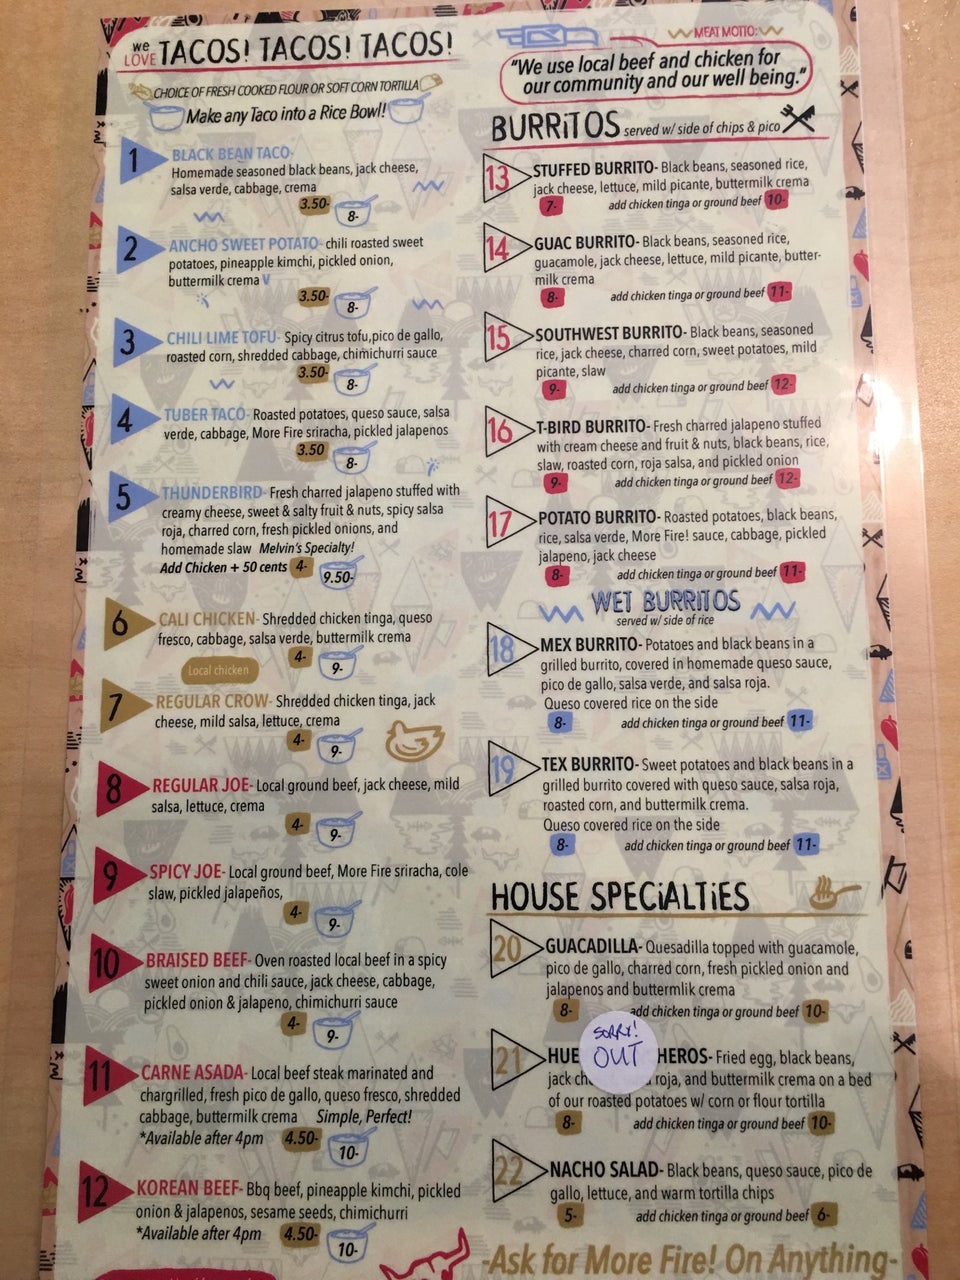 we LOVE TACOS! TACOS! TACOS!
CHOICE OF FRESH COOKED FLOUR OR SOFT CORN TORTILLA
Make any Taco into a Rice Bowl!
1 BLACK BEAN TACO-
Homemade seasoned black beans, jack cheese,
salsa verde, cabbage, crema
3.50- 8-
2 ANCHO SWEET POTATO- chili roasted sweet
potatoes, pineapple kimchi, pickled onion,
buttermilk crema V
3.50- 8-
3 CHILI LIME TOFU- Spicy citrus tofu,pico de gallo,
roasted corn, shredded cabbage, chimichurri sauce
3.50- 8-
4 TUBER TACO- Roasted potatoes, queso sauce, salsa
verde, cabbage, More Fire sriracha, pickled jalapenos
3.50 8-
5 THUNDERBIRD- Fresh charred jalapeno stuffed with
creamy cheese, sweet & salty fruit & nuts, spicy salsa
roja, charred corn, fresh pickled onions, and
homemade slaw Melvin's Specialty!
Add Chicken + 50 cents 4- 9.50-
6 CALI CHICKEN- Shredded chicken tinga, queso
fresco, cabbage, salsa verde, buttermilk crema
4- 9-
Local chicken
7 REGULAR CROW- Shredded chicken tinga, jack
cheese, mild salsa, lettuce, crema
4- 9-
8 REGULAR JOE- Local ground beef, jack cheese, mild
salsa, lettuce, crema
4- 9-
9 SPICY JOE- Local ground beef, More Fire sriracha, cole
slaw, pickled jalapeños,
4- 9-
10 BRAISED BEEF- Oven roasted local beef in a spicy
sweet onion and chili sauce, jack cheese, cabbage,
pickled onion & jalapeno, chimichurri sauce
4- 9-
11 CARNE ASADA- Local beef steak marinated and
chargrilled, fresh pico de gallo, queso fresco, shredded
cabbage, buttermilk crema Simple, Perfect!
*Available after 4pm 4.50- 10-
12 KOREAN BEEF- Bbq beef, pineapple kimchi, pickled
onion & jalapenos, sesame seeds, chimichurri
*Available after 4pm 4.50- 10-
MEAT MOTTO:
"We use local beef and chicken for
our community and our well being."
BURRITOS served w/ side of chips & pico
13 STUFFED BURRITO- Black beans, seasoned rice,
jack cheese, lettuce, mild picante, buttermilk crema
7- add chicken tinga or ground beef 10-
14 GUAC BURRITO- Black beans, seasoned rice,
guacamole, jack cheese, lettuce, mild picante, butter-
milk crema
8- add chicken tinga or ground beef 11-
15 SOUTHWEST BURRITO- Black beans, seasoned
rice, jack cheese, charred corn, sweet potatoes, mild
picante, slaw
9- add chicken tinga or ground beef 12-
16 T-BIRD BURRITO- Fresh charred jalapeno stuffed
with cream cheese and fruit & nuts, black beans, rice,
slaw, roasted corn, roja salsa, and pickled onion
9- add chicken tinga or ground beef 12-
17 POTATO BURRITO- Roasted potatoes, black beans,
rice, salsa verde, More Fire! sauce, cabbage, pickled
jalapeno, jack cheese
8- add chicken tinga or ground beef 11-
WET BURRITOS
served w/ side of rice
18 MEX BURRITO- Potatoes and black beans in a
grilled burrito, covered in homemade queso sauce,
pico de gallo, salsa verde, and salsa roja.
Queso covered rice on the side
8- add chicken tinga or ground beef 11-
19 TEX BURRITO- Sweet potatoes and black beans in a
grilled burrito covered with queso sauce, salsa roja,
roasted corn, and buttermilk crema.
Queso covered rice on the side
8- add chicken tinga or ground beef 11-
HOUSE SPECIALTIES
20 GUACADILLA- Quesadilla topped with guacamole,
pico de gallo, charred corn, fresh pickled onion and
jalapenos and buttermlik crema
8- add chicken tinga or ground beef 10-
SORRY!
OUT
21 HUE HEROS- Fried egg, black beans,
jack ch roja, and buttermilk crema on a bed
of our roasted potatoes w/ corn or flour tortilla
8- add chicken tinga or ground beef 10-
22 NACHO SALAD- Black beans, queso sauce, pico de
gallo, lettuce, and warm tortilla chips
5- add chicken tinga or ground beef 6-
-Ask for More Fire! On Anything-